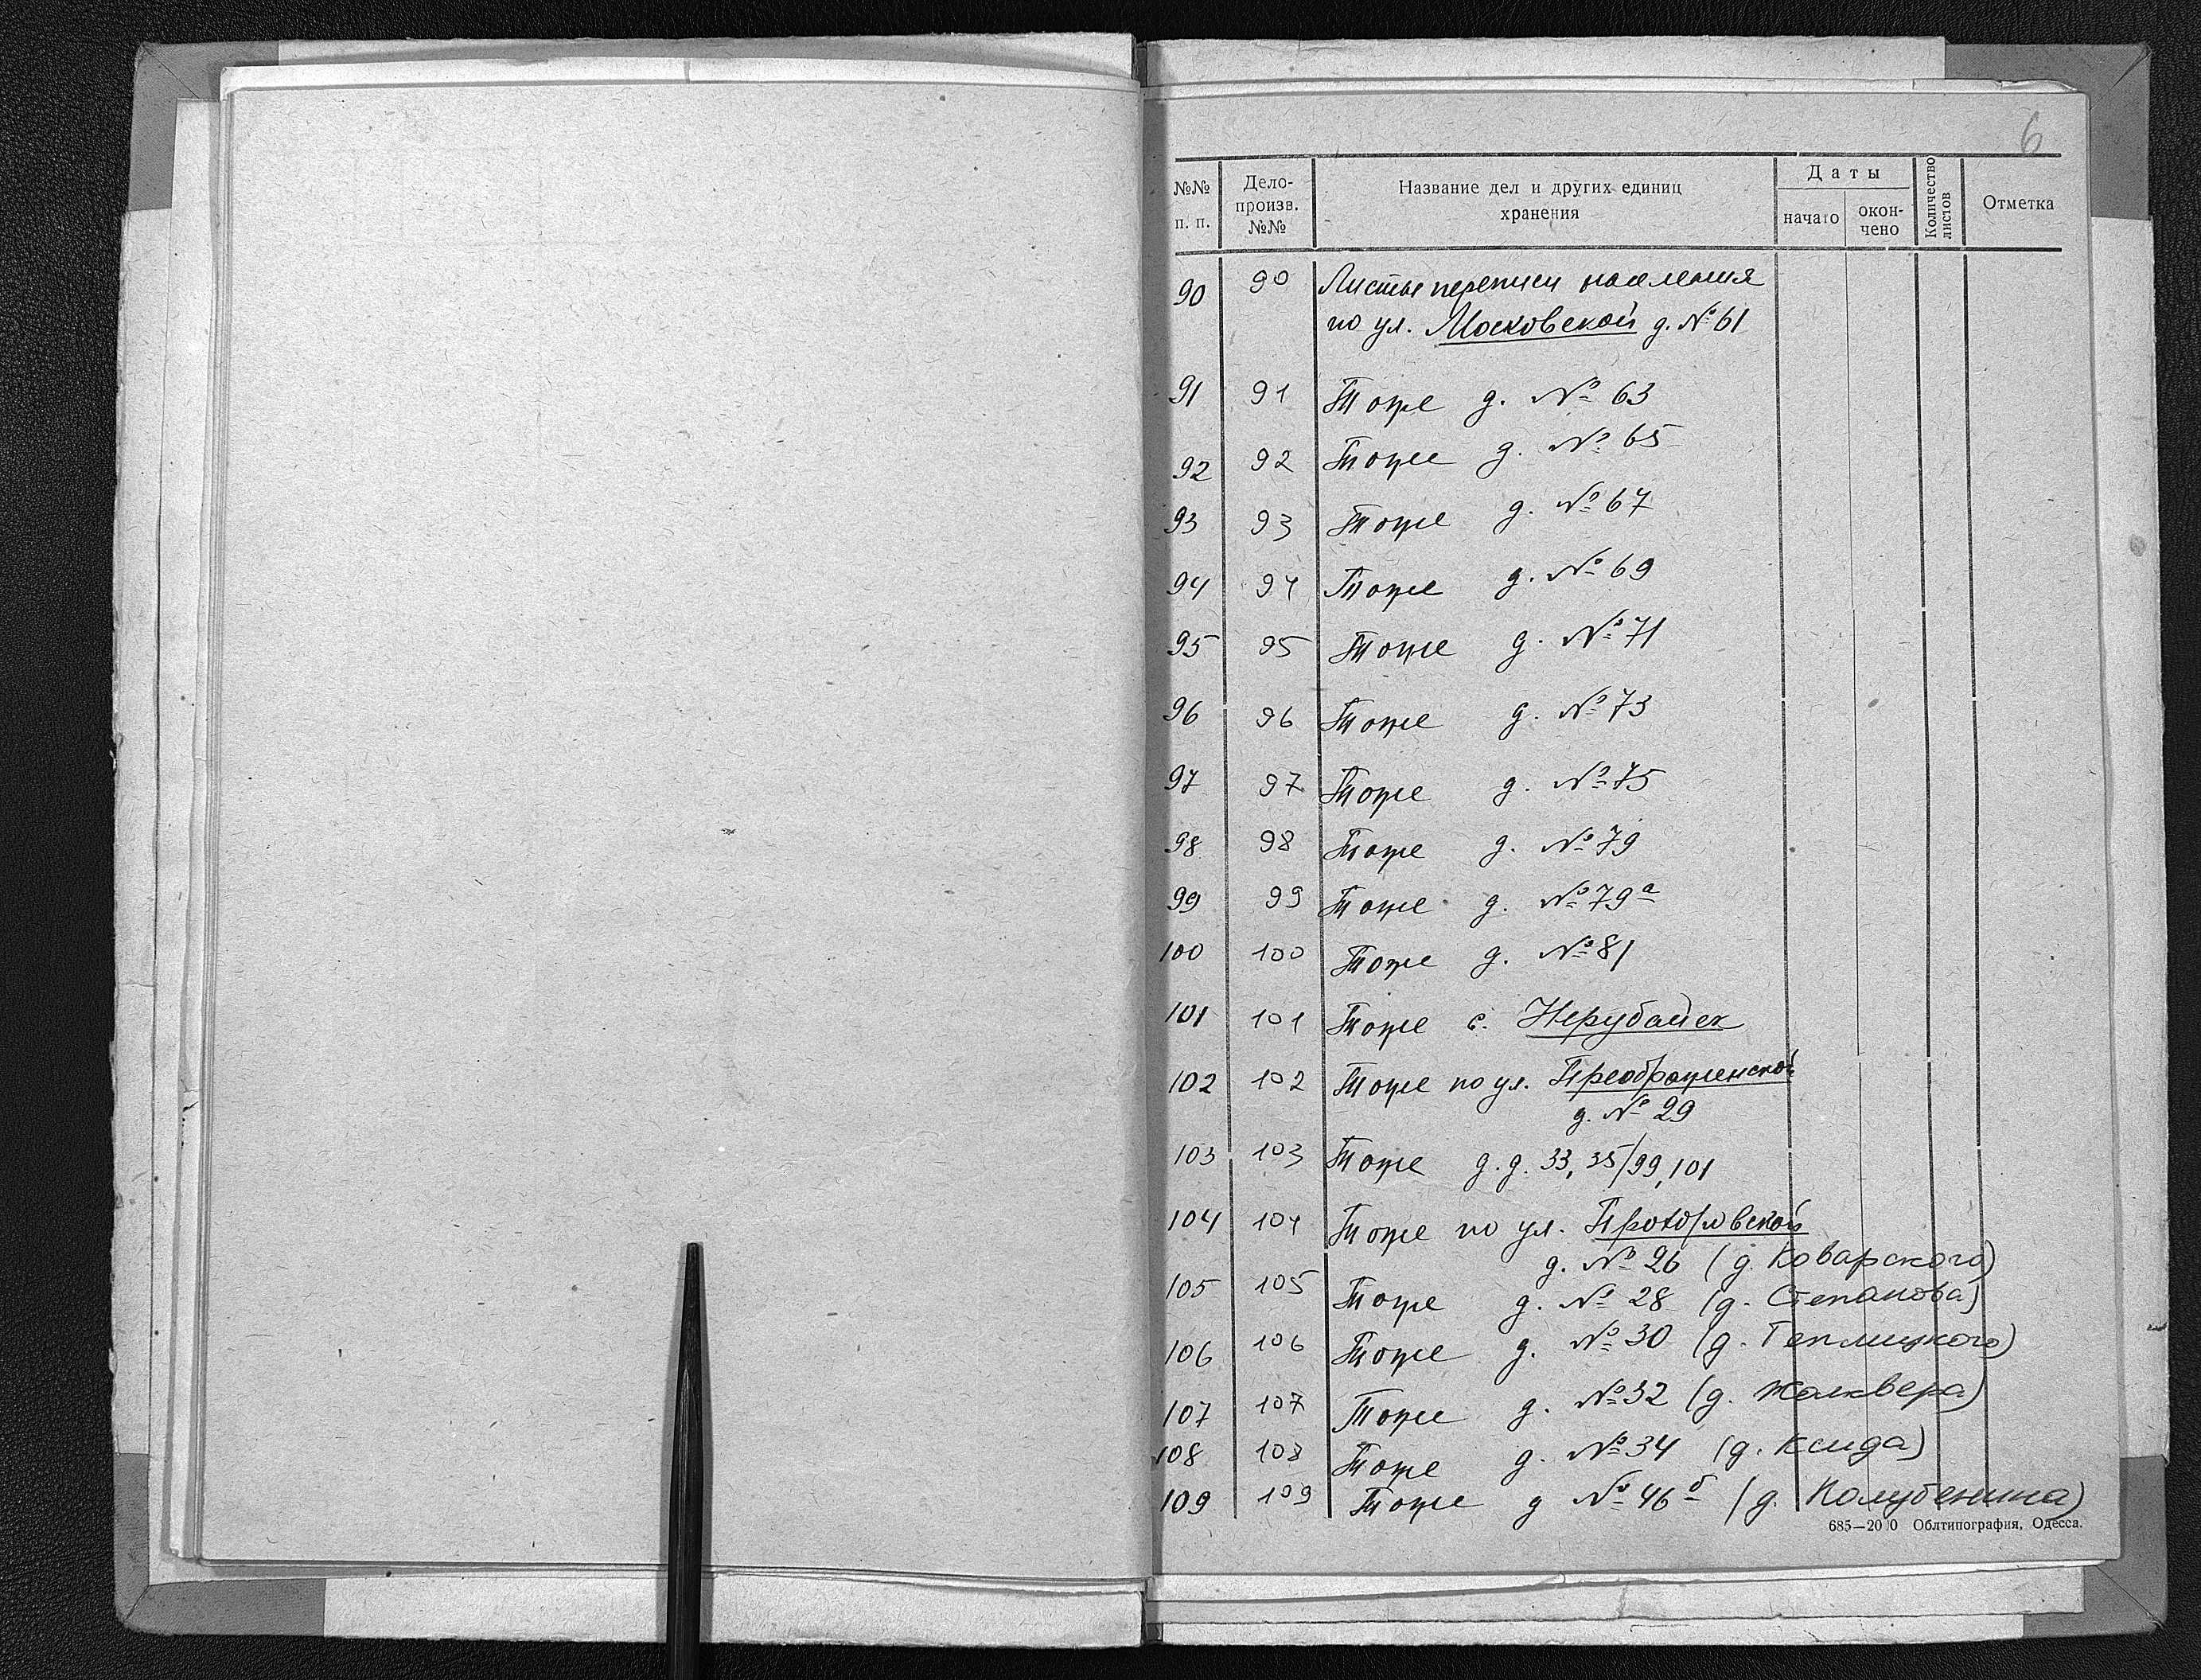 6
№№ п. п. Дело-произв. №№ Название дел и других единиц хранения Даты начато окончено Количество листов Отметка
90 90 Листы переписи населения
по ул. Московской д. № 61
91 91 Тоже д. № 63
92 92 Тоже д. № 65
93 93 Тоже д. № 67
94 94 Тоже д. № 69
95 95 Тоже д. № 71
96 96 Тоже д. № 73
97 97 Тоже д. № 75
98 98 Тоже д. № 79
99 99 Тоже д. № 79а
100 100 Тоже д. № 81
101 101 Тоже с. Нерубайск
102 102 Тоже по ул. Преображенской
д. № 29
103 103 Тоже д.д. 33, 35/99, 101
104 104 Тоже по ул.
д. № 26 (д. Коварского)
105 105 Тоже д. № 28 (д. Степанова)
106 106 Тоже д. № 30 (д. Теплицкого)
107 107 Тоже д. № 32 (д. Жалквера)
108 108 Тоже д. № 34 (д. Ксида)
109 109 Тоже д № 46б (д. Колубенина)
685—2000 Облтипография, Одесса.